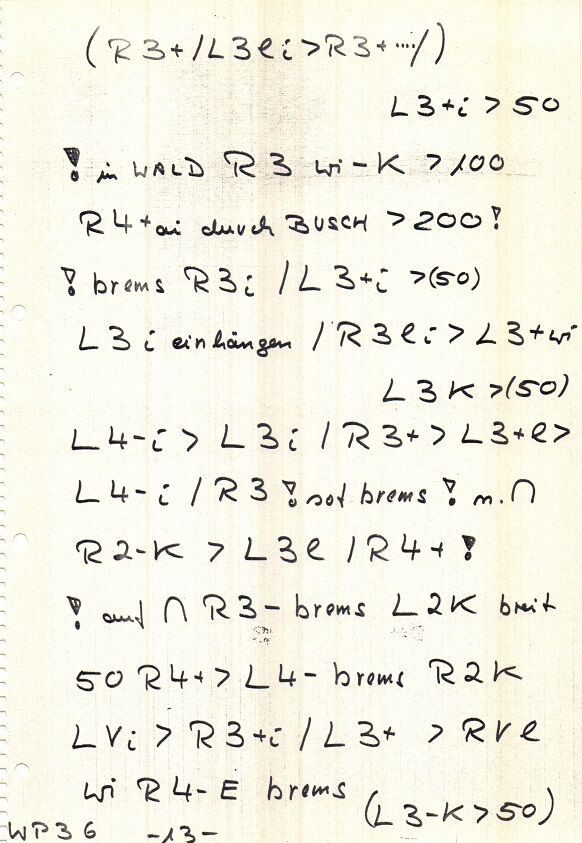 (R3+/L3li>R3+····/)
L3+i > 50
! in WALD R3 wi-K > 100
R4+ai durch BUSCH > 200!
! brems R3i / L3+i >(50)
L3i einhängen / R3li > L3+wi
L3K >(50)
L4-i > L3i / R3+ > L3+l >
L4-i / R3 ! sof brems ! n.∩
R2-K > L3l / R4+ !
! auf ∩ R3- brems L2K breit
50 R4+ > L4- brems R2K
LVi > R3+i / L3+ > RVl
wi R4-E brems (L3-K > 50)
WP36 -13-